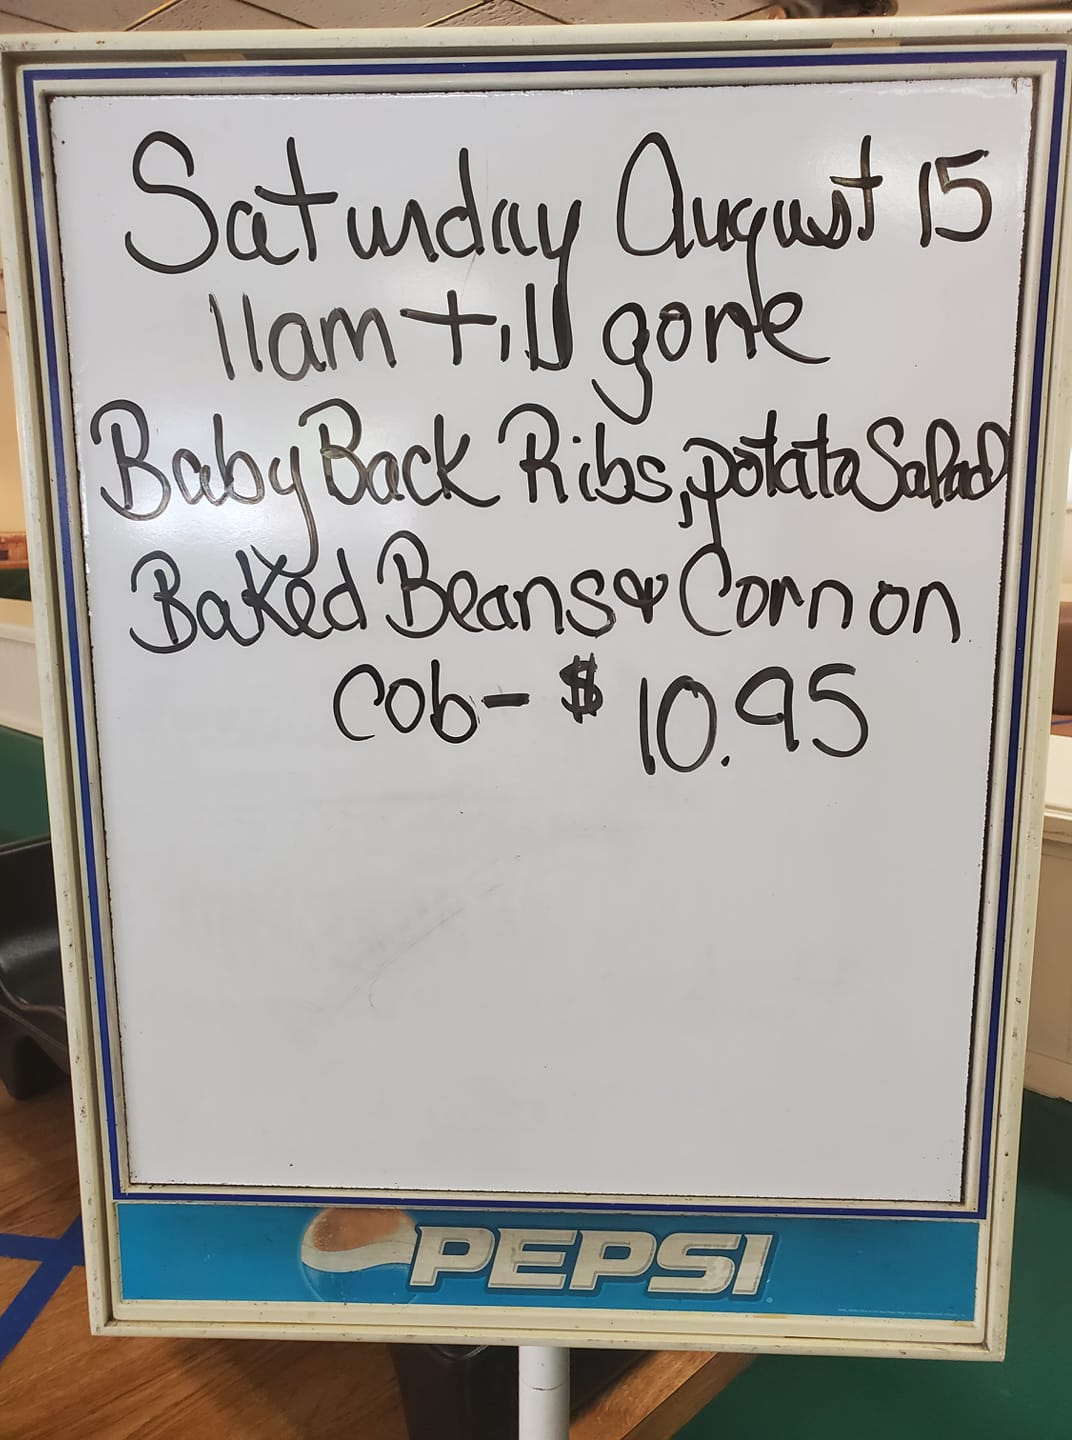 Saturday August 15
11am till gone
Baby Back Ribs, potato Salad
Baked Beans & Corn on
Cob - $ 10.95
PEPSI